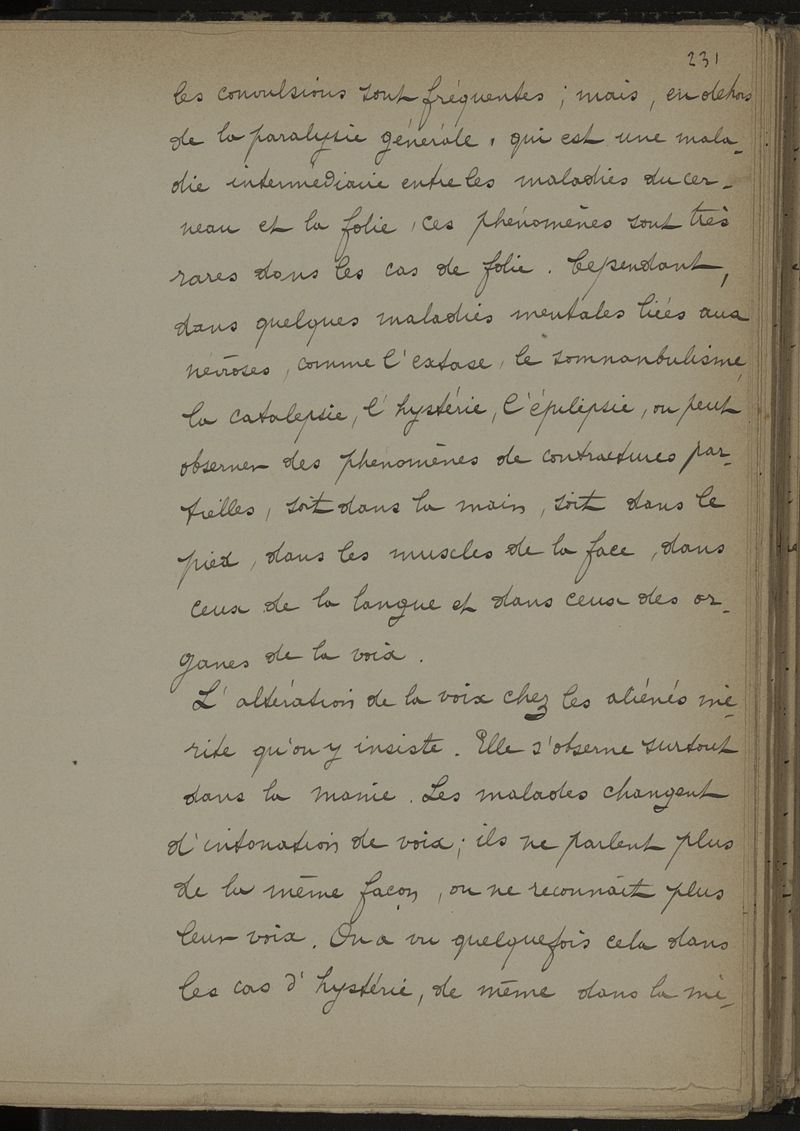 231
les convulsions sont fréquentes ; mais, en dehors
de la paralysie générale, qui est une mala-
die intermédiaire entre les maladies du cer-
veau et la folie, ces phénomènes sont très
rares dans les cas de folie. Cependant,
dans quelques maladies mentales liées aux
névroses, comme l'extase, le somnanbulisme,
la catalepsie, l'hystérie, l'épilepsie, on peut
observer des phénomènes de contractures par-
tielles, soit dans la main, soit dans le
pied, dans les muscles de la face, dans
ceux de la langue et dans ceux des or-
ganes de la voix.
L'altération de la voix chez les aliénés mé-
rite qu'on y insiste. Elle s'observe surtout
dans la manie. Les malades changent
d'intonation de voix; ils ne parlent plus
de la même façon, on ne reconnaît plus
leur voix. On a vu quelquefois cela dans
les cas d'hystérie, de même dans la mé-